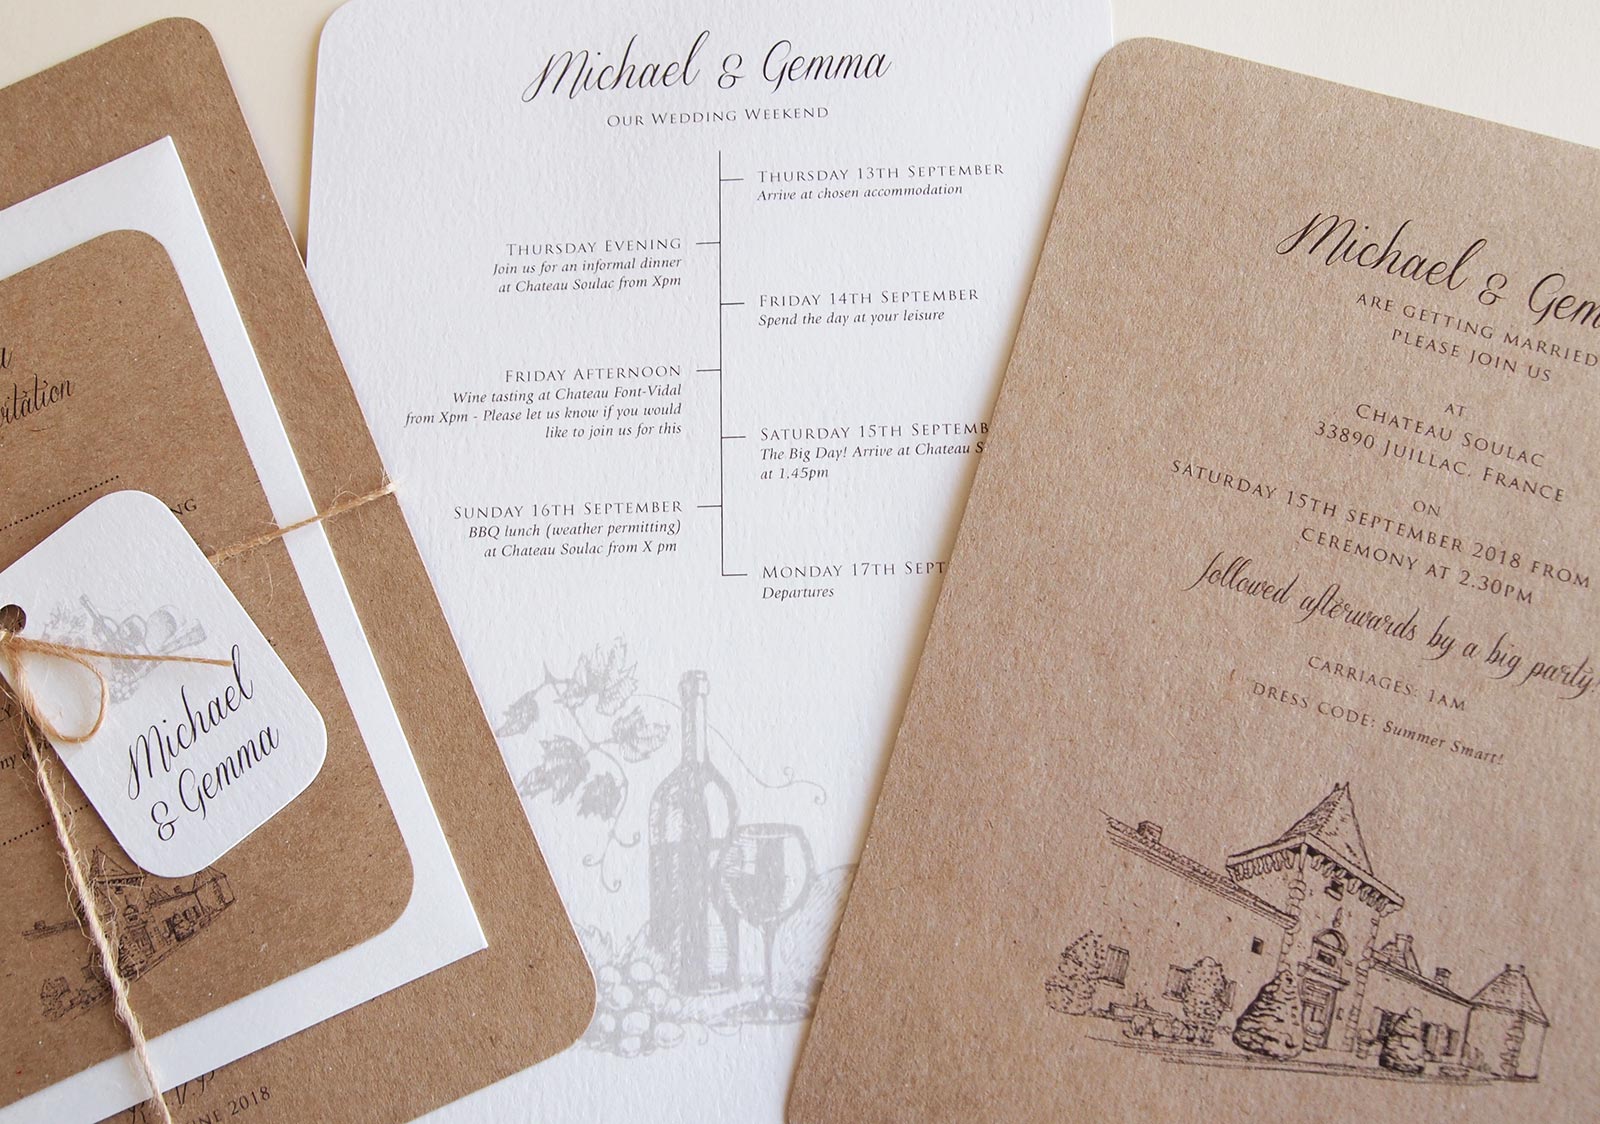 Michael & Gemma
OUR WEDDING WEEKEND
THURSDAY 13TH SEPTEMBER
Arrive at chosen accommodation
THURSDAY EVENING
Join us for an informal dinner
at Chateau Soulac from Xpm
FRIDAY 14TH SEPTEMBER
Spend the day at your leisure
FRIDAY AFTERNOON
Wine tasting at Chateau Font-Vidal
from Xpm - Please let us know if you would
like to join us for this
SATURDAY 15TH SEPTEMB
The Big Day! Arrive at Chateau S
at 1.45pm
SUNDAY 16TH SEPTEMBER
BBQ lunch (weather permitting)
at Chateau Soulac from X pm
MONDAY 17TH SEPT
Departures
Michael & Gem
ARE GETTING MARRIED
PLEASE JOIN US
AT
CHATEAU SOULAC
33890 JUILLAC, FRANCE
ON
SATURDAY 15TH SEPTEMBER 2018 FROM
CEREMONY AT 2.30PM
followed afterwards by a big party!
CARRIAGES: 1AM
DRESS CODE: Summer Smart!
vitation
NG
Michael
& Gemma
NE 2018